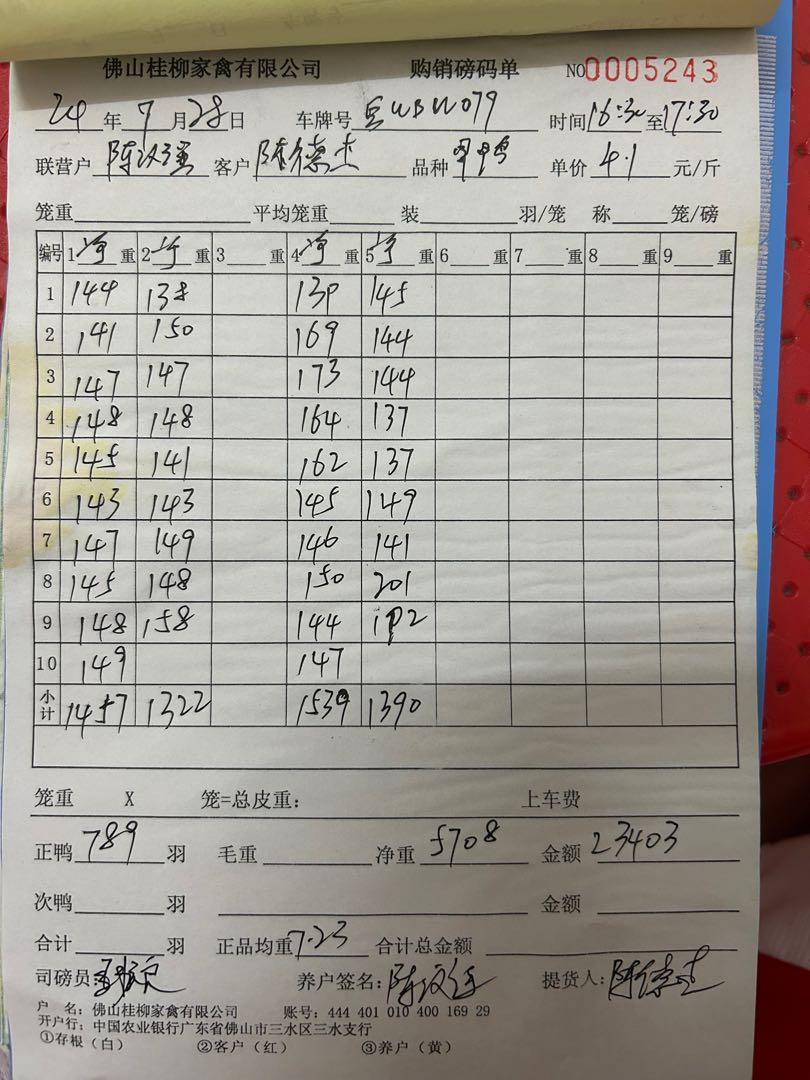 佛山桂柳家禽有限公司 购销磅码单 NO0005243
24年7月28日 车牌号 WBW079 时间16:30至17:30
联营户 陈汉强 客户 陈德杰 品种 单价4.1元/斤
笼重 平均笼重 装 羽/笼 称 笼/磅
编号 1净重 2净重 3 重 4净重 5净重 6 重 7 重 8 重 9 重
1 144 138 139 145
2 141 150 169 144
3 147 147 173 144
4 148 148 164 137
5 145 141 162 137
6 143 143 145 149
7 147 149 146 141
8 145 148 150 201
9 148 158 144 192
10 149 147
小计 1457 1322 1539 1390
笼重 X 笼=总皮重: 上车费
正鸭 789 羽 毛重 净重 5708 金额 23403
次鸭 羽 金额
合计 羽 正品均重 7.23 合计总金额
司磅员: 养户签名: 提货人: 陈德杰
户 名: 佛山桂柳家禽有限公司 账号: 444 401 010 400 169 29
开户行: 中国农业银行广东省佛山市三水区三水支行
①存根（白） ②客户（红） ③养户（黄）